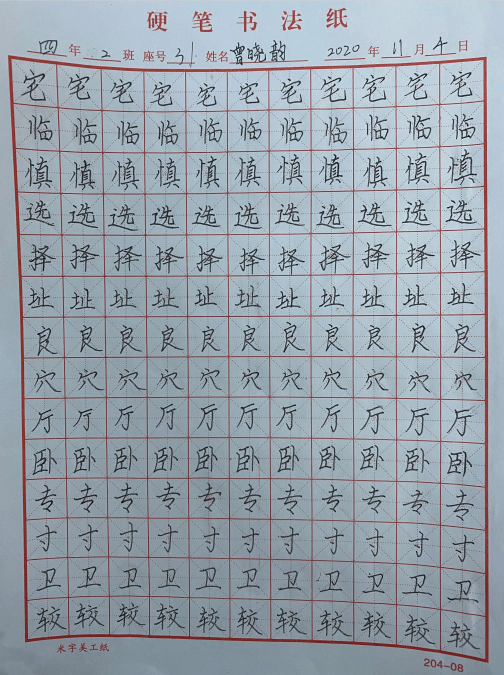 硬笔书法纸
四年 2班 座号31 姓名曾晓韵 2020年11月4日
宅宅宅宅宅宅宅宅宅宅宅
临临临临临临临临临临临
慎慎慎慎慎慎慎慎慎慎慎
选选选选选选选选选选选
择择择择择择择择择择择
址址址址址址址址址址址
良良良良良良良良良良良
穴穴穴穴穴穴穴穴穴穴穴
厅厅厅厅厅厅厅厅厅厅厅
卧卧卧卧卧卧卧卧卧卧卧
专专专专专专专专专专专
寸寸寸寸寸寸寸寸寸寸寸
卫卫卫卫卫卫卫卫卫卫卫
较较较较较较较较较较较
米字美工纸 204-08